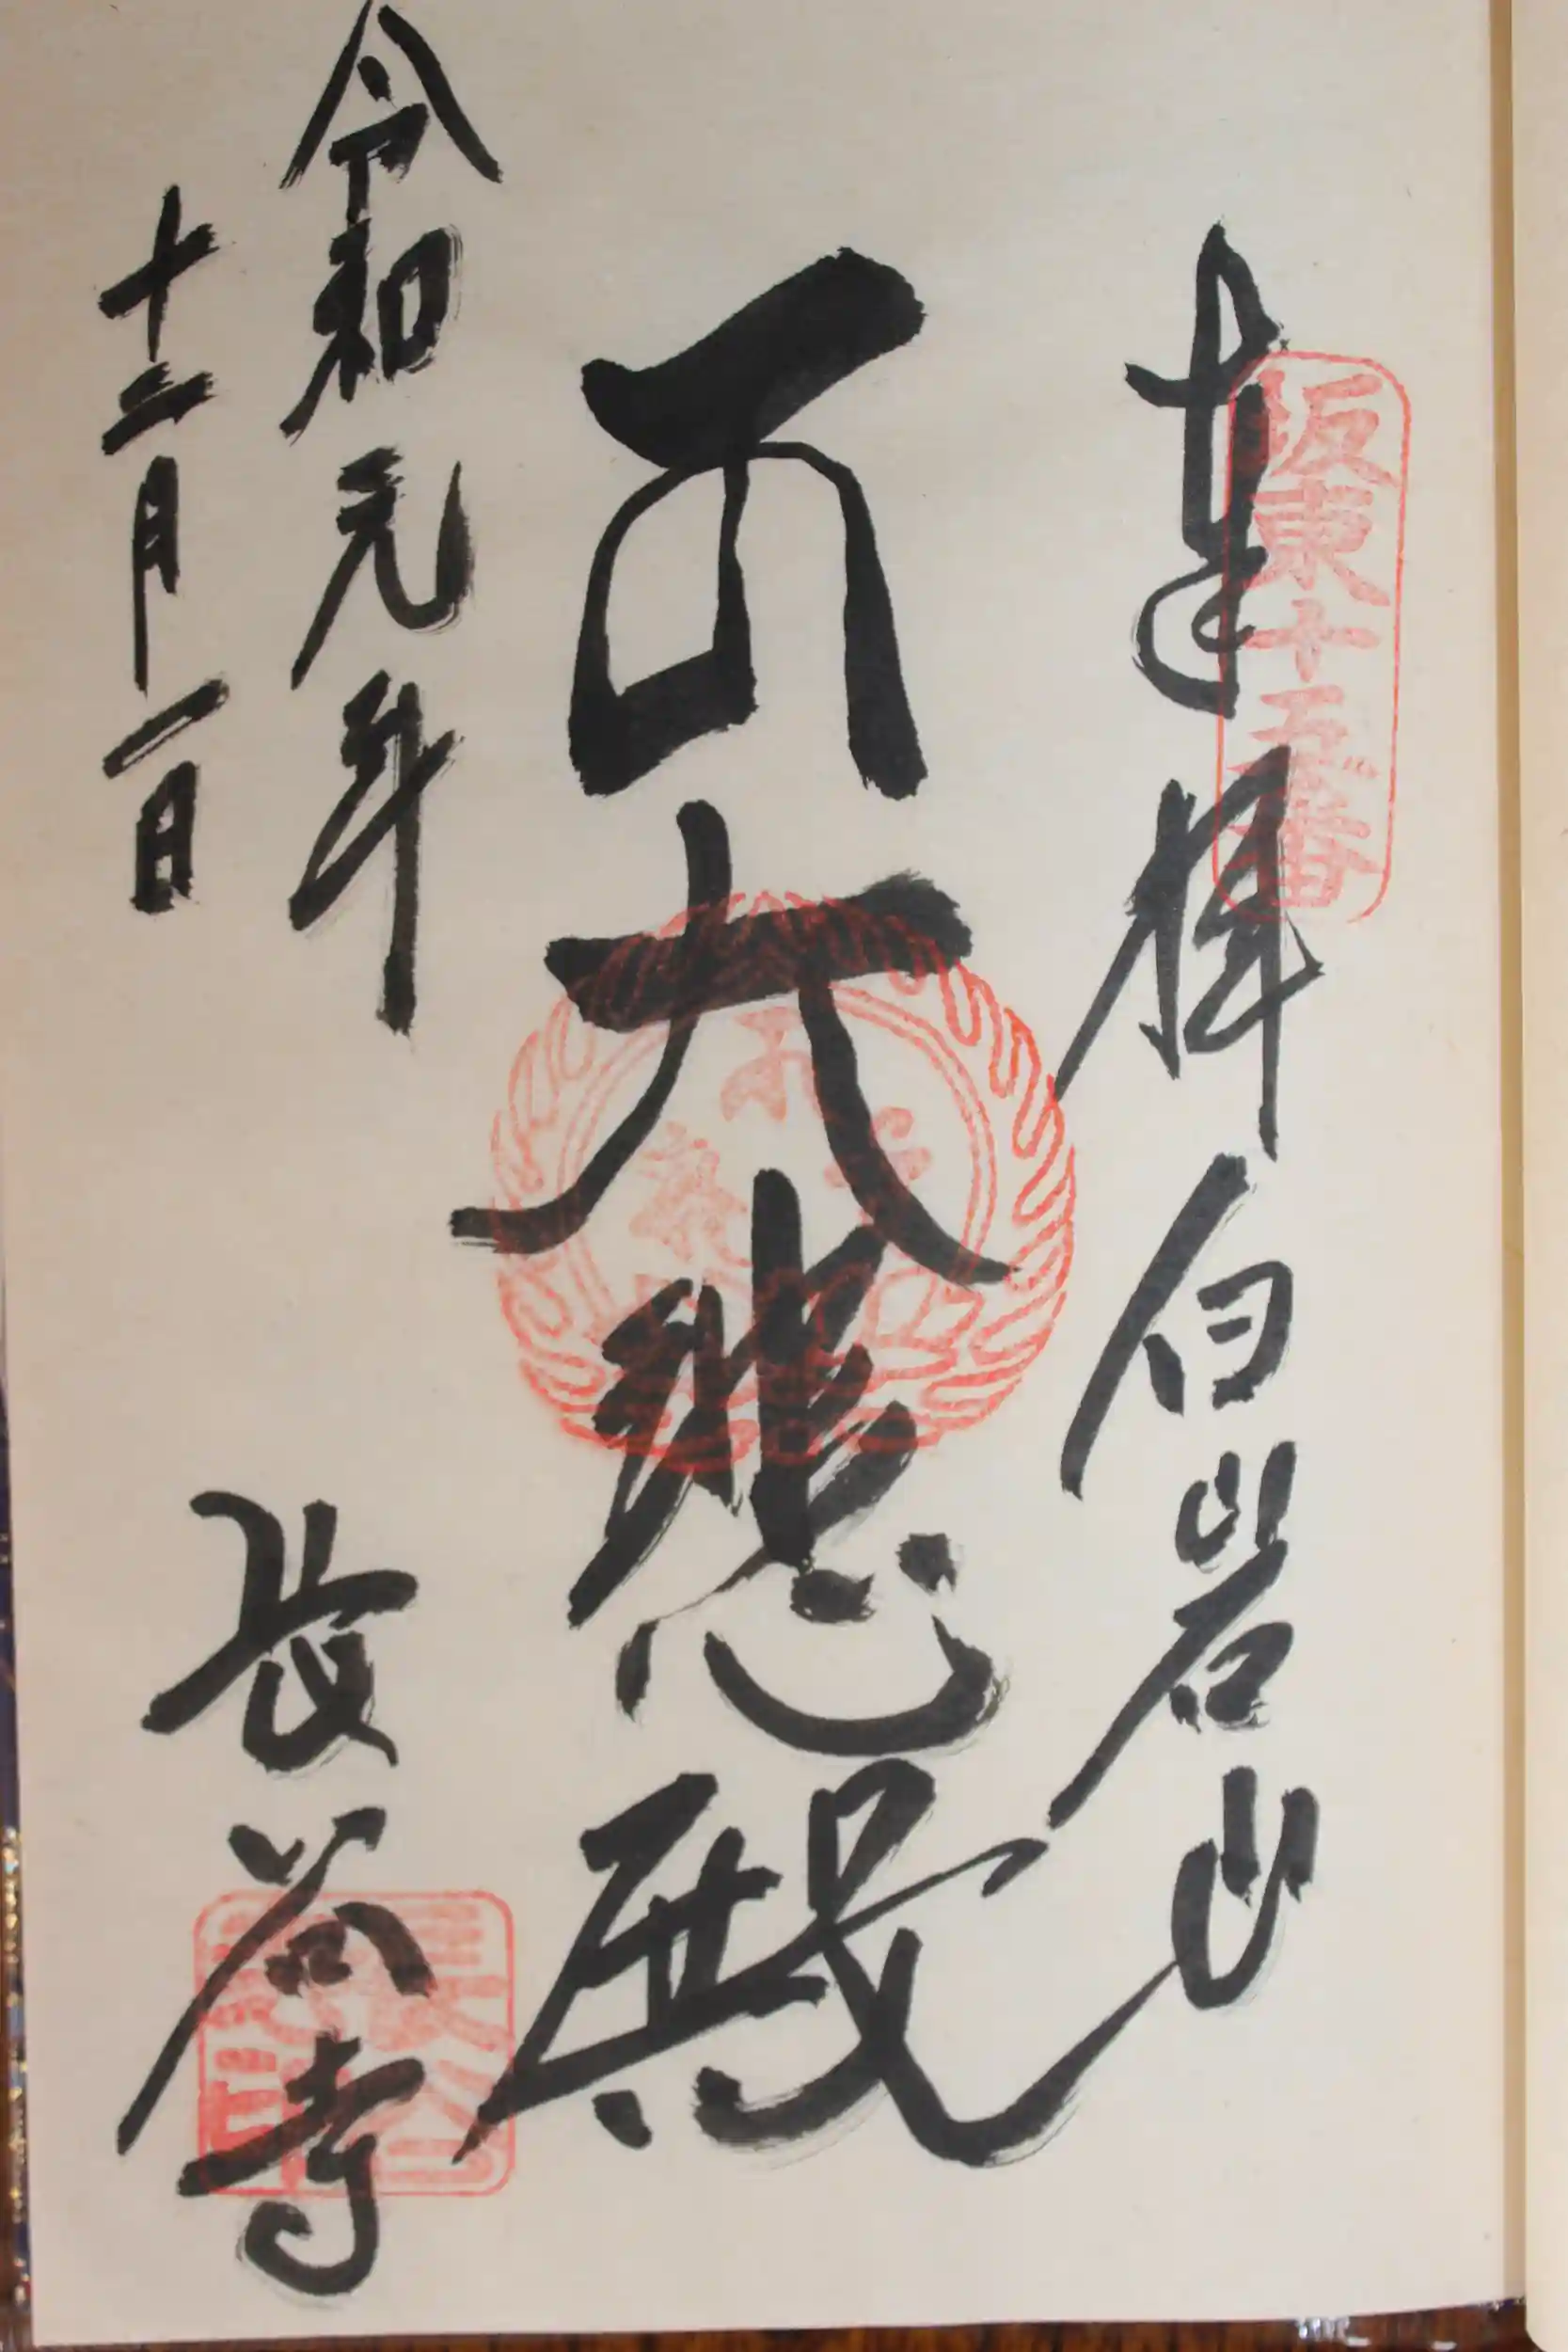 坂東十五番
奉拝 白岩山
大悲殿
令和元年
十二月一日
長谷寺